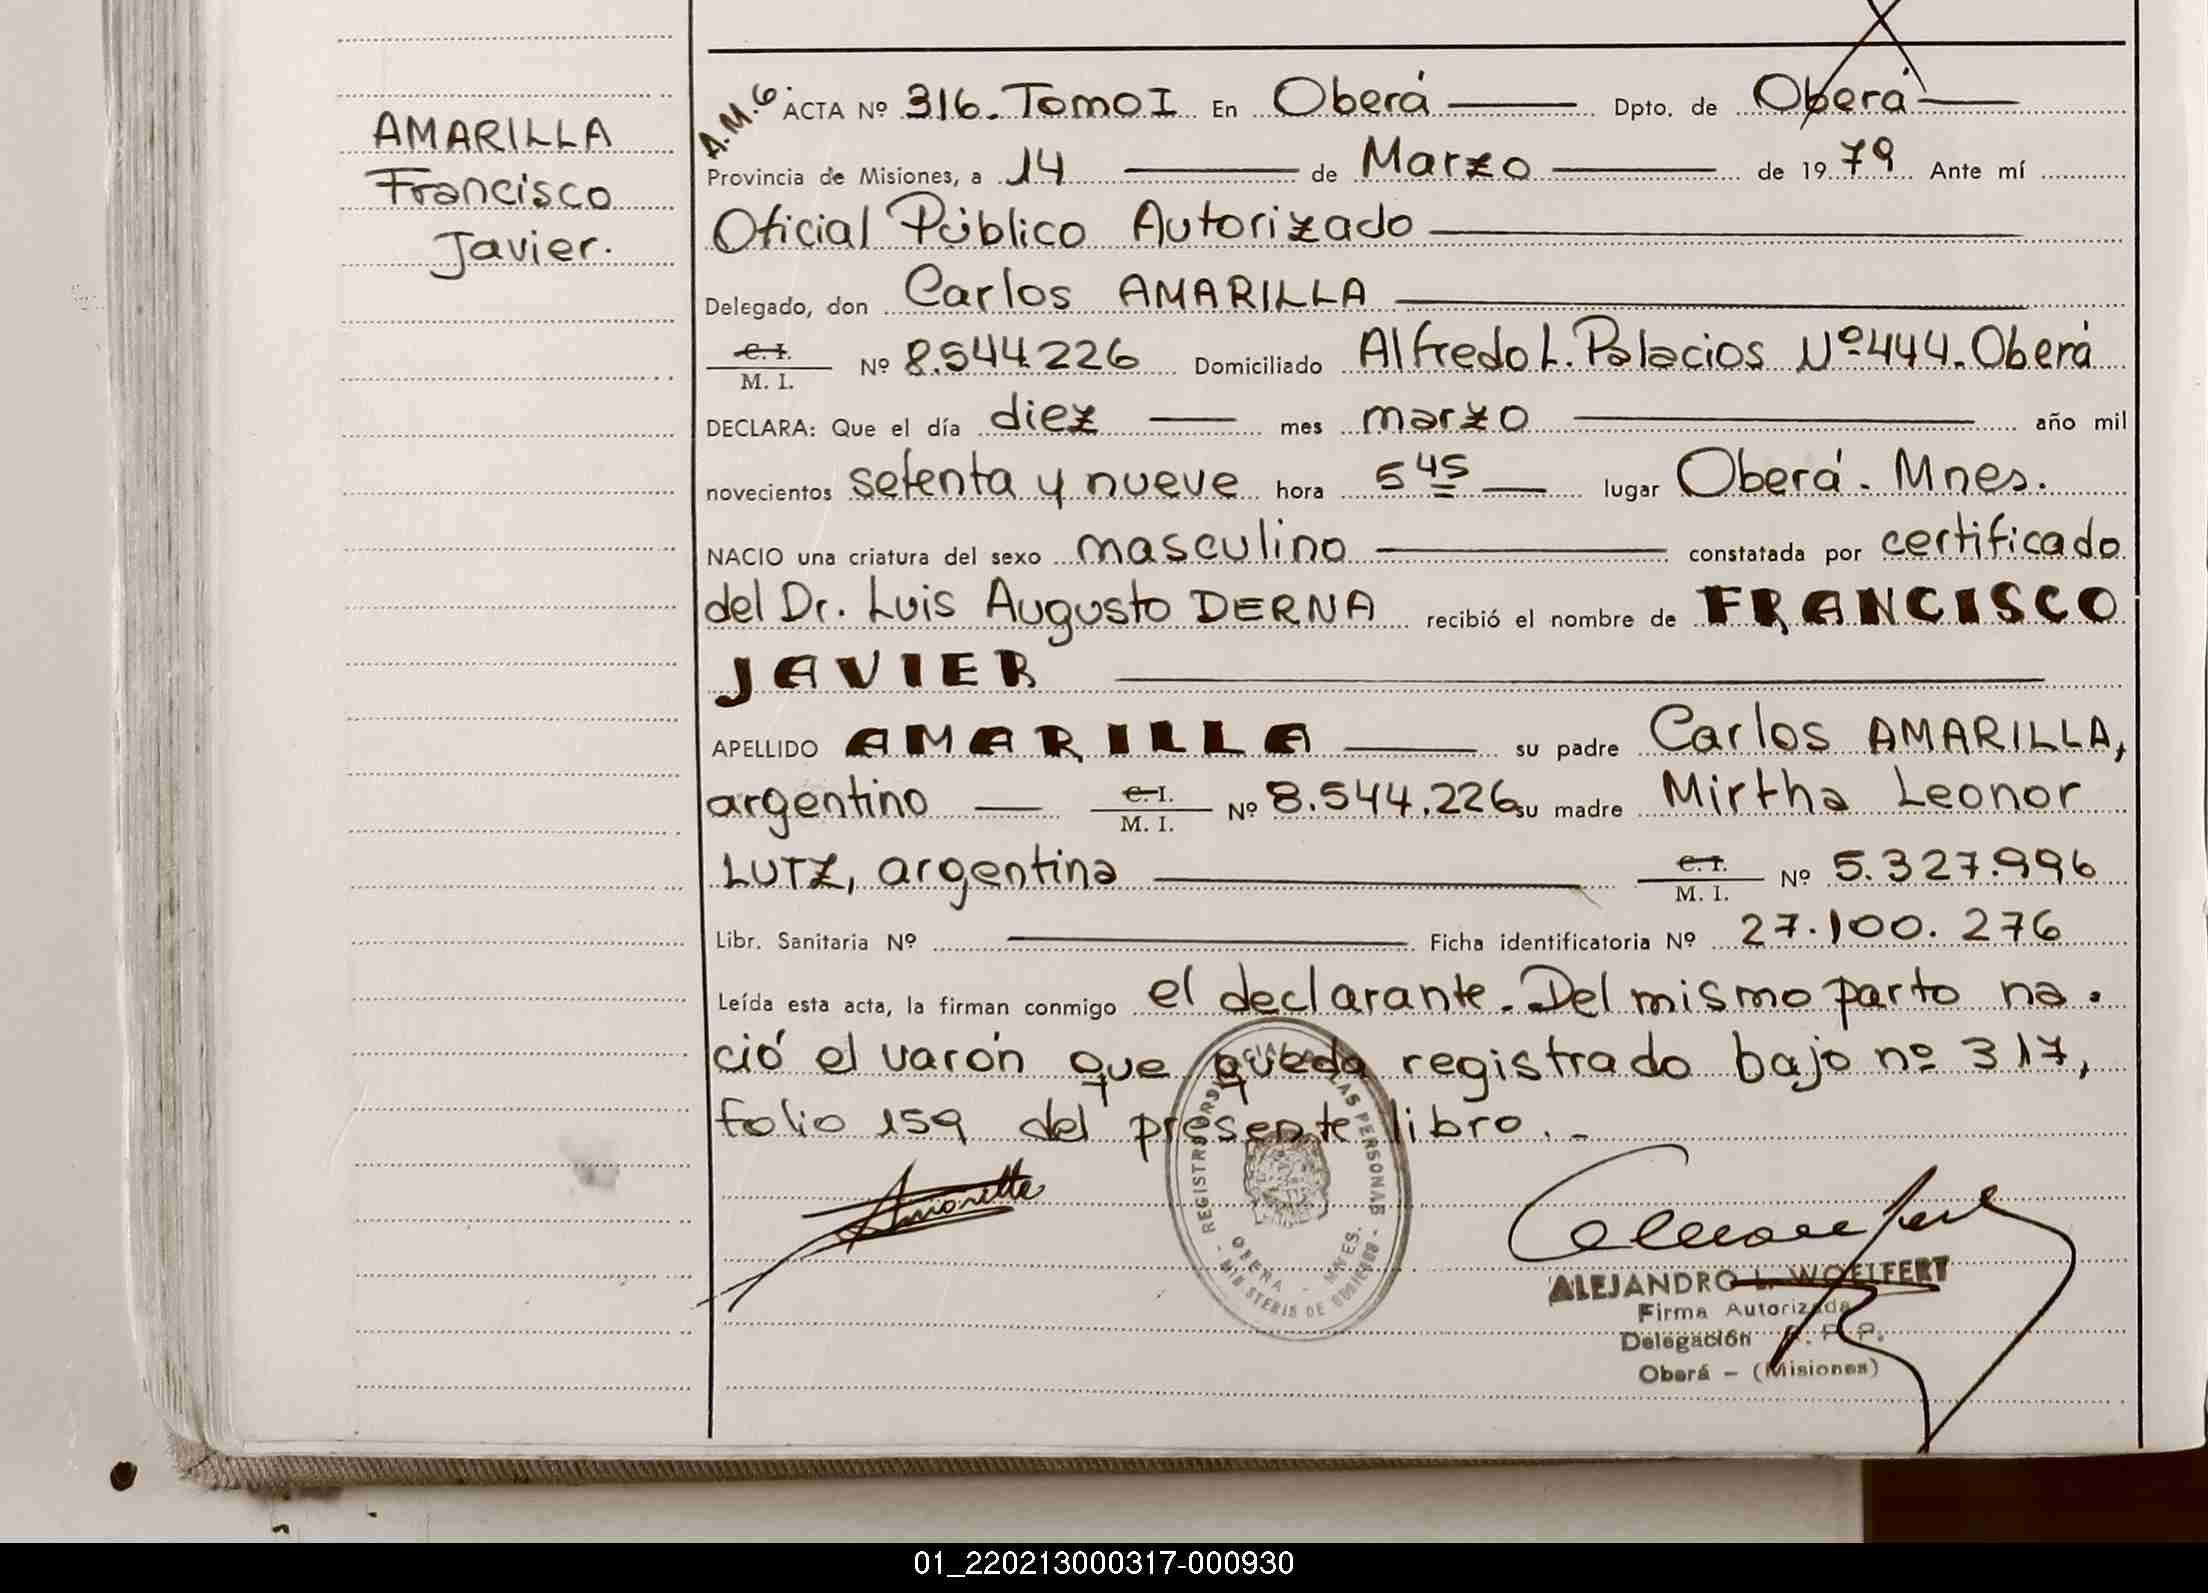 AMARILLA
Francisco
Javier.
A.M.6
ACTA Nº 316. Tomo I En Oberá Dpto. de Oberá
Provincia de Misiones, a 14 de Marzo de 1979 Ante mí
Oficial Público Autorizado
Delegado, don Carlos AMARILLA
C. I. / M. I. Nº 8.544.226 Domiciliado Alfredo L. Palacios Nº 444. Oberá
DECLARA: Que el día diez mes marzo año mil
novecientos setenta y nueve hora 5 45 lugar Oberá. Mnes.
NACIO una criatura del sexo masculino constatada por certificado
del Dr. Luis Augusto DERNA recibió el nombre de FRANCISCO
JAVIER
APELLIDO AMARILLA su padre Carlos AMARILLA,
argentino C. I. / M. I. Nº 8.544.226 su madre Mirtha Leonor
LUTZ, argentina C. I. / M. I. Nº 5.327.996
Libr. Sanitaria Nº Ficha identificatoria Nº 27.100.276
Leída esta acta, la firman conmigo el declarante. Del mismo parto na-
ció el varón que queda registrado bajo nº 317,
folio 159 del presente libro.-
OBERA - MNES.
ALEJANDRO L. WOELFERT
Firma Autorizada
Delegación R. P. P.
Oberá - (Misiones)
01_220213000317-000930